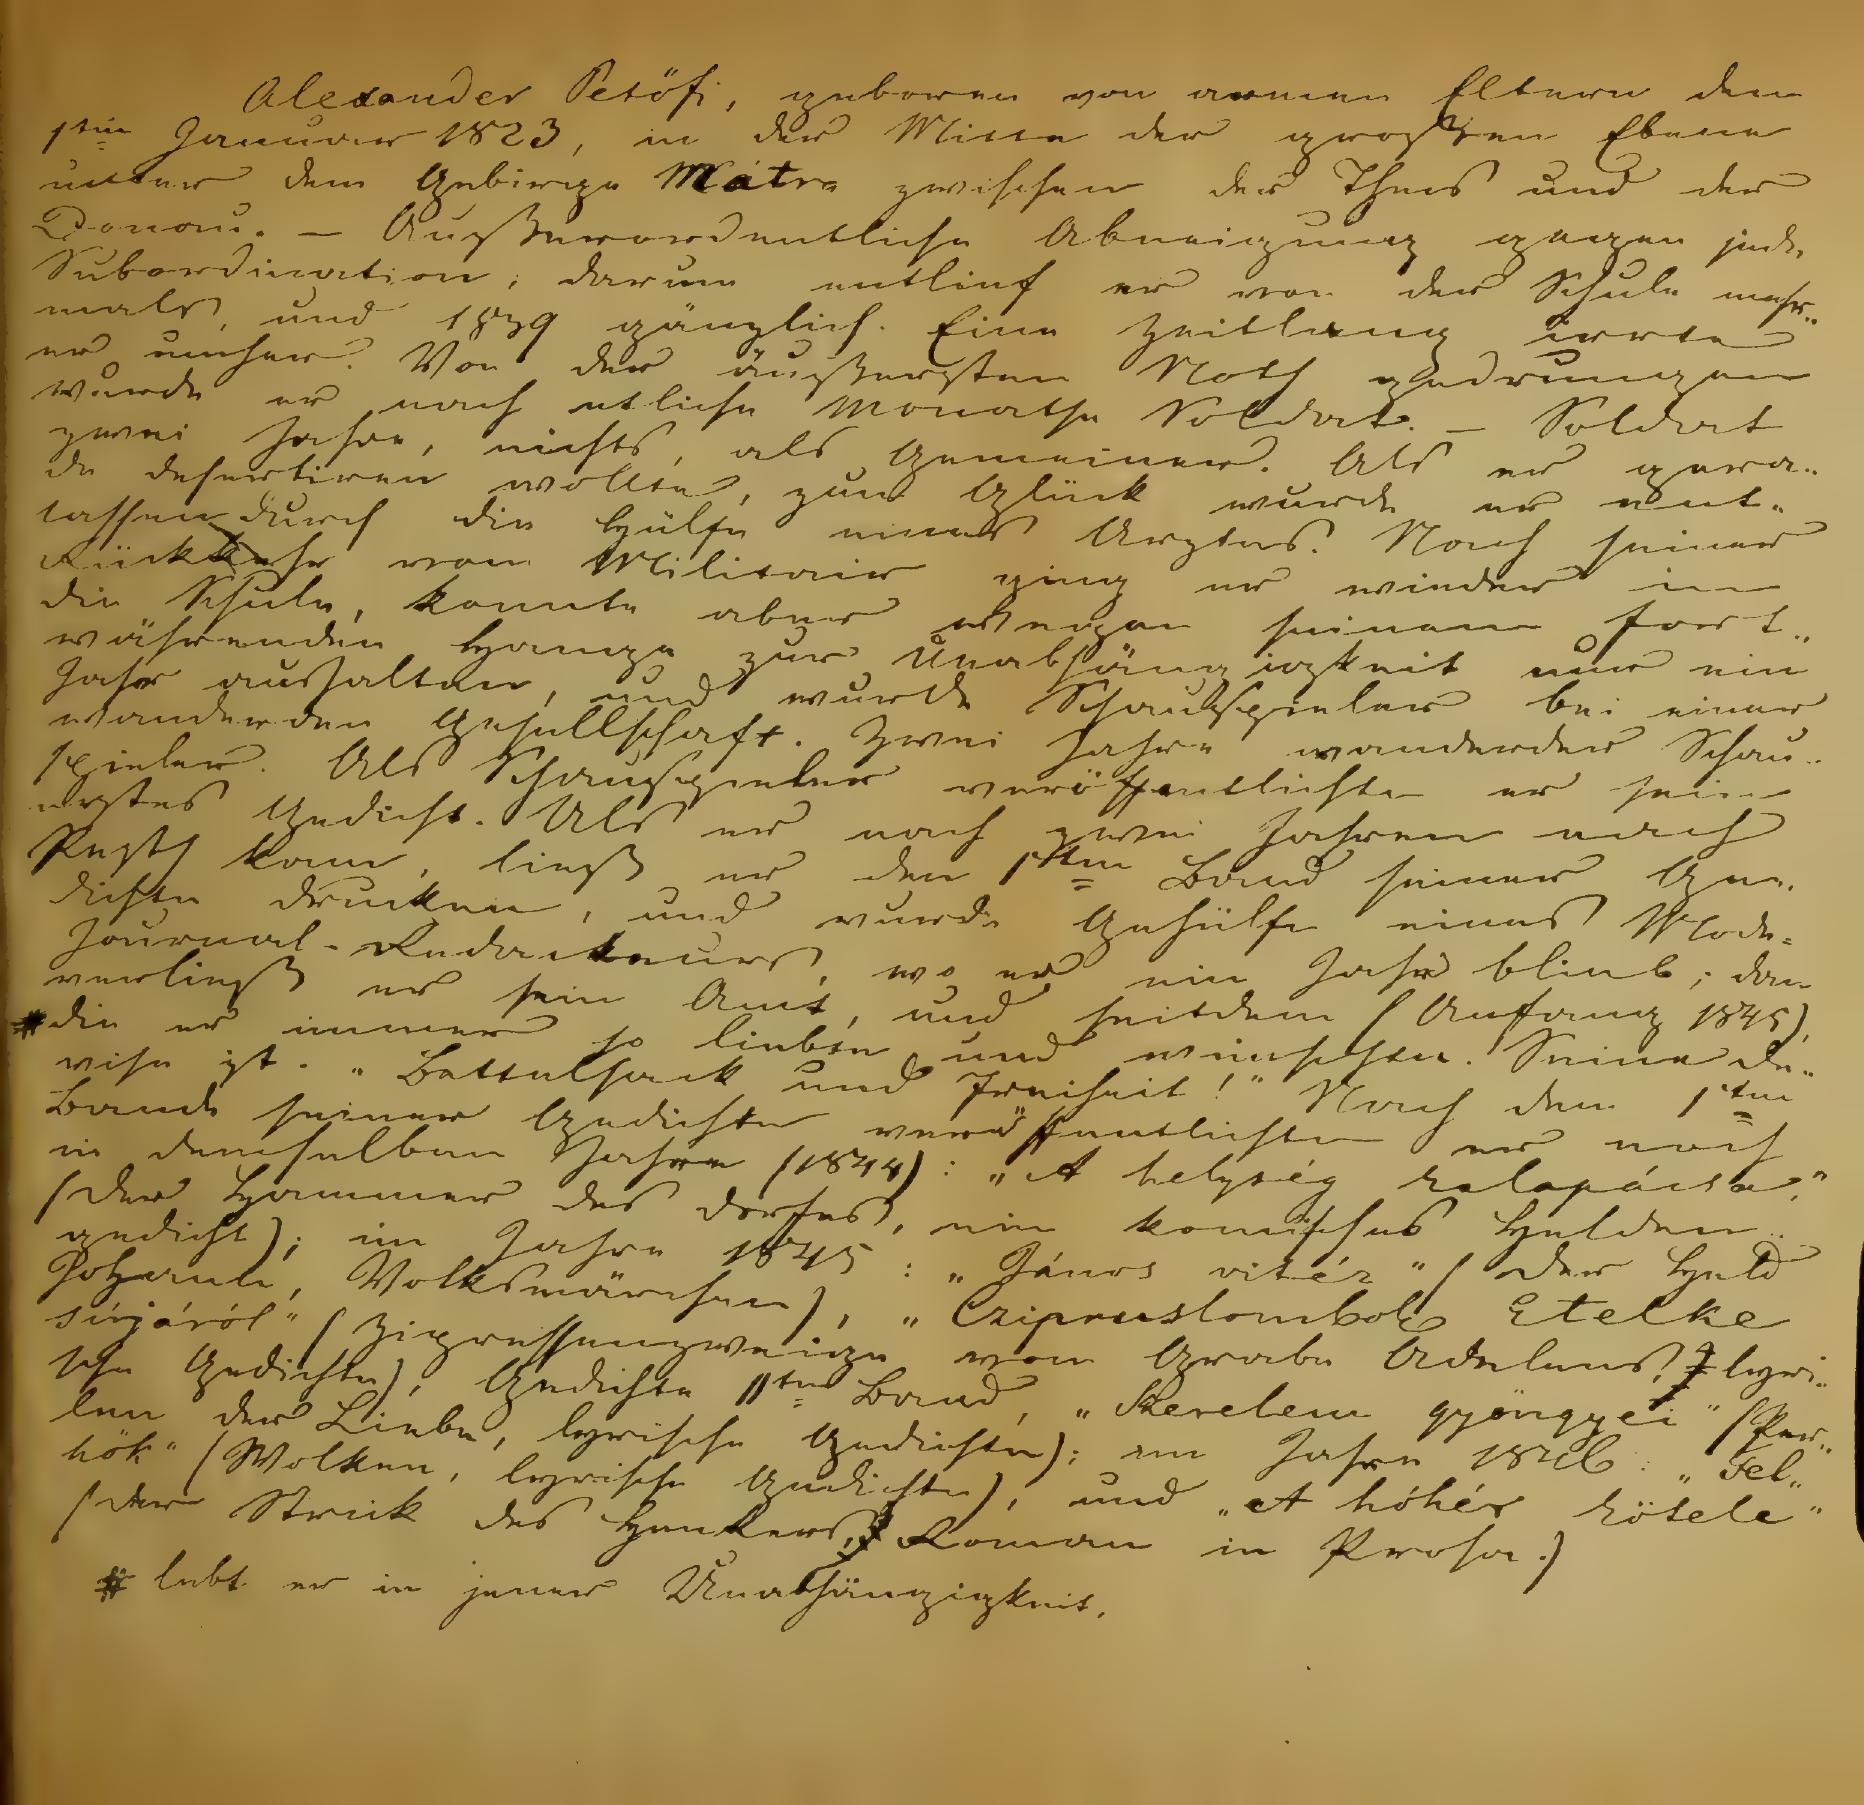 Alexander Petöfi, geboren von armen Eltern den
1ten Januar 1823, in der Mitte der großen Ebene
unter dem Gebirge Mátra zwischen der Theis und der
Donau. — Außerordentliche Abneigung gegen jede
Subordination; darum entlief er von der Schule mehr-
mals, und 1839 gänzlich. Eine Zeitlang irrte
er umher. Von der äußersten Noth gedrungen
wurde er nach etliche Monathe Soldat. — Soldat
zwei Jahre, nichts, als Gemeiner. Als er gera-
de desertiren wollte, zum Glück wurde er ent-
lassen durch die Hülfe eines Arztes. Nach seiner
Rückkehr vom Militair ging er wieder in
die Schule, konnte aber wegen seinem fort-
währenden Hange zur Unabhängigkeit nur ein
Jahr aushalten, und wurde Schauspieler bei einer
wandernden Gesellschaft. Zwei Jahre wanderder Schau-
spieler. Als Schauspieler veröffentlichte er sein
erstes Gedicht. Als er nach zwei Jahren nach
Pesth kam, ließ er den 1ten Band seiner Ge-
dichte drucken, und wurde Gehülfe eines Mode-
Journal-Redackteurs, wo er ein Jahr blieb; dan
verließ er sein Amt, und seitdem (Anfang 1845),
# die er immer so liebte und wünschte. Seine De-
vise ist: „Bettelsack und Freiheit!“ Nach dem 1ten
Bande seiner Gedichte veröffentlichte er noch
in demselben Jahre (1844): „A helység kalapácsa“
(der Hammer des Dorfes, ein komisches Helden-
gedicht); im Jahre 1845: „János vitéz“ (der Held
Johann, Volksmärchen), „Cziprus lombok Etelke
sírjáról“ (Zipressenzweige vom Grabe Adelens, lyri-
sche Gedichte), Gedichte IIter Band, „Szerelem gyöngyei“ (Per-
len der Liebe, lyrische Gedichte); im Jahre 1846: „Fel-
hök“ (Wolken, lyrische Gedichte), und „A hóhér kötele“
(der Strick des Henkers, Roman in Prosa.)
# lebt er in jener Unabhängigkeit,